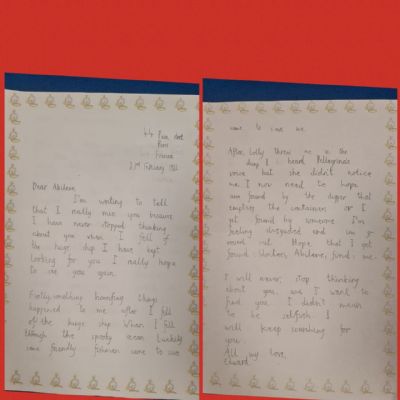 44 Rue
Paris
France
21st February 1922
Dear Abilene,
I'm writing to tell
that I really miss you because
I have never stopped thinking
about you when I fell of
the huge ship I have kept
looking for you I really hope
to see you again.
Firstly, something horrifing things
happened to me after I fell
of the huge ship. When I fell
through the spooky ocean Luckily
some friendly fishermen came to save
came to save me.
After Lolly threw me in the
I heard Pellegrina's
voice but she didn't notice
me. I now need to hope
found by the digger that
empties the containers or I
get found by someone. I'm
feeling and
Hope that I get
found. Abilene, find me
I will never stop thinking
about you, and I want to
find you I didn't mean
to be selfish. I
will keep searching for
you.
All my love,
Edward